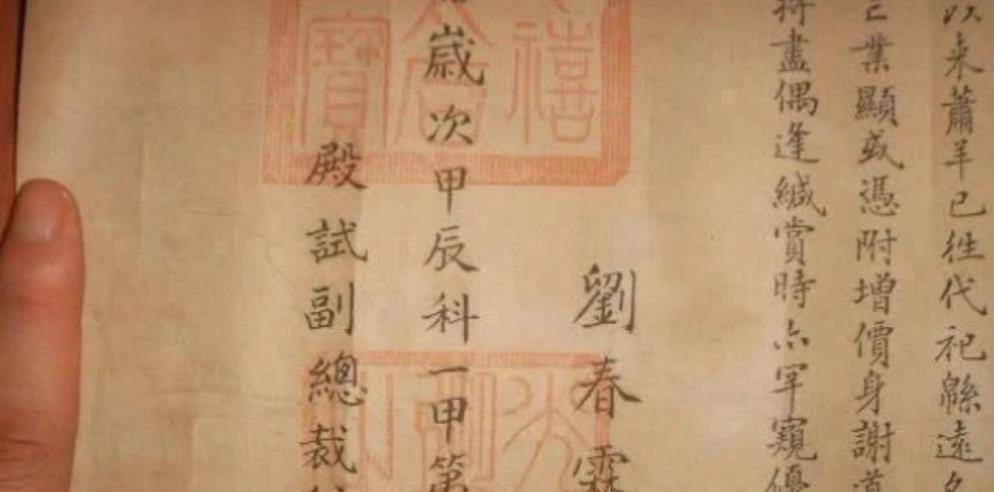 以来蕭羊已往代祀緜遠名
業顯或憑附增價身謝道
將盡偶逢緘賞時亦罕窺優
劉春霖
歲次甲辰科一甲第
殿試副總裁
禧
寶